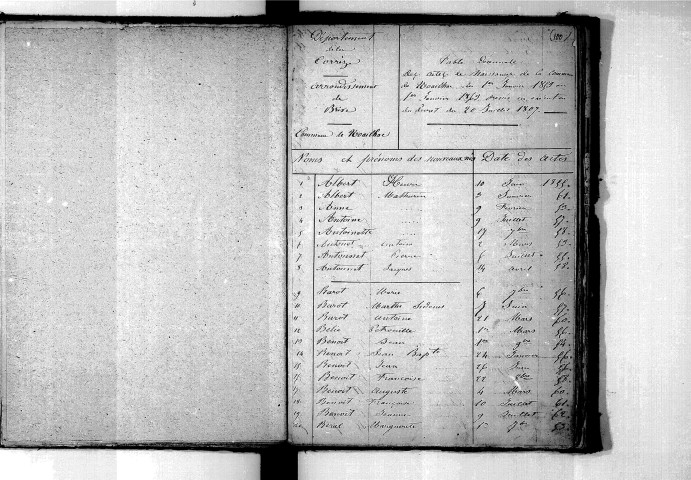 (100)
Département
de la
Corrèze
Arrondissement
de
Brive
Commune de Noailhac
Table Décennale
Des actes de Naissance de la commune
de Noailhac du 1er Janvier 1853 au
1er Janvier 1863, dressée en exécution
du décret du 20 Juillet 1807.
Noms et prénoms des nouveaux nés Date des actes
1 Albert 10 Juin
2 Albert Mathurin 3 Janvier
3 Anne 9 Février 53
4 Antoine 9 Juillet 57
5 Antoinette 17 7bre 58
6 Antoine 2 Mars 53
7 Antonnet Pierre Juillet
8 Antonnet Jacques 14 Avril 58
9 Barot Marie 7bre 56
Barot Marthe Juin 57
11 Barot Antoine 21 Mars 60
12 Petronille 1er Mars 56
13 Benoit Jean 1er 9bre 54
14 Benoit Jean Bapte 24 Janvier 56
15 Benoit Jean 25 Juin
16 Benoit Françoise 22
17 Benoit Auguste 4 Mars 60
18 Benoit Françoise 10 Juillet 61
19 Benoit 9 Juillet 62
20 Marguerite 53